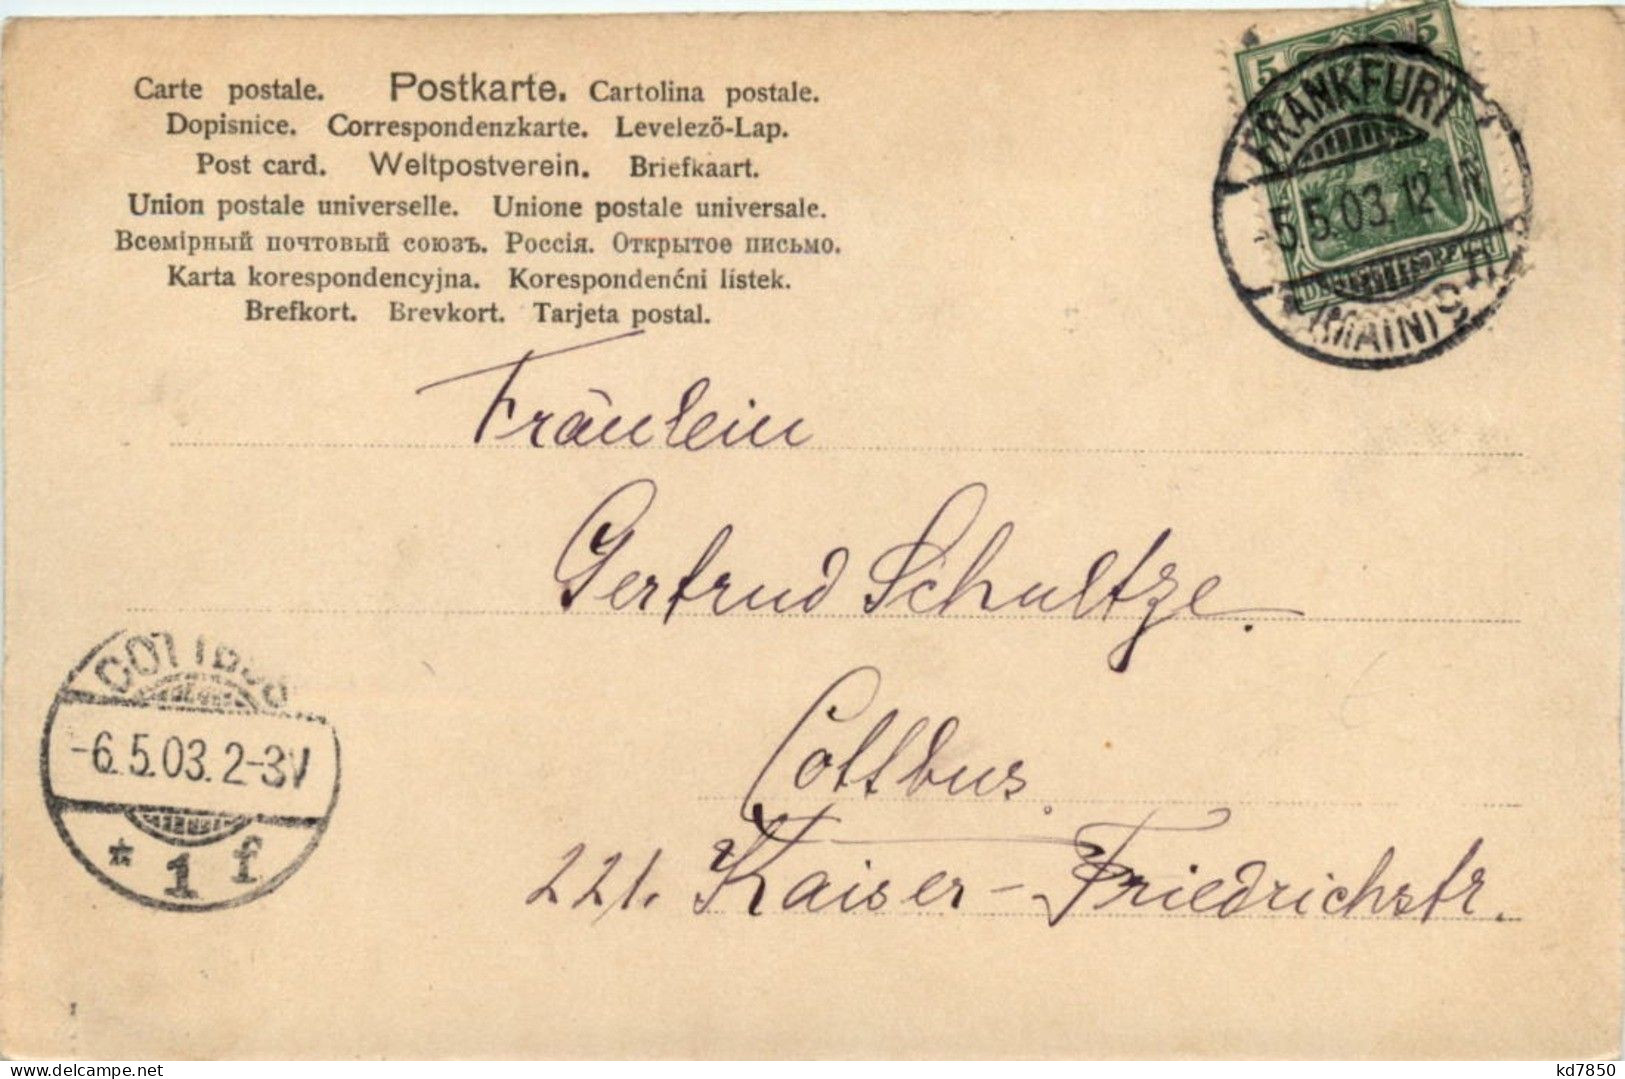 Carte postale. Postkarte. Cartolina postale.
Dopisnice. Correspondenzkarte. Levelezö-Lap.
Post card. Weltpostverein. Briefkaart.
Union postale universelle. Unione postale universale.
Всемірный почтовый союзъ. Россія. Открытое письмо.
Karta korespondencyjna. Korespondenćni lístek.
Brefkort. Brevkort. Tarjeta postal.
5 5
FRANKFURT
5.5.03. 12-1N
(MAIN) 9
Fräulein
Gertrud Schultze.
Cottbus.
221. Kaiser-Friedrichstr.
COTTBUS
-6.5.03. 2-3V
* 1 f
kd7850